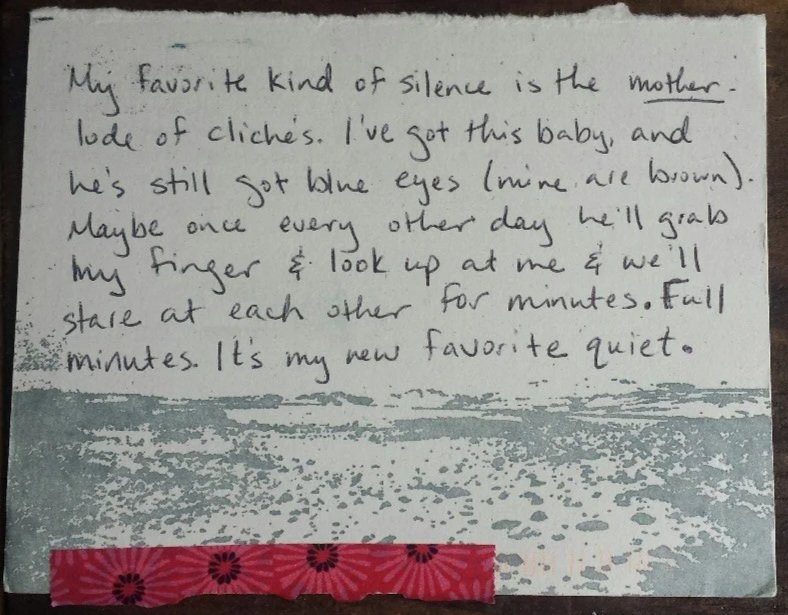 My favorite kind of silence is the mother-
lode of clichés. I've got this baby, and
he's still got blue eyes (mine are brown).
Maybe once every other day he'll grab
my finger & look up at me & we'll
stare at each other for minutes. Full
minutes. It's my new favorite quiet.